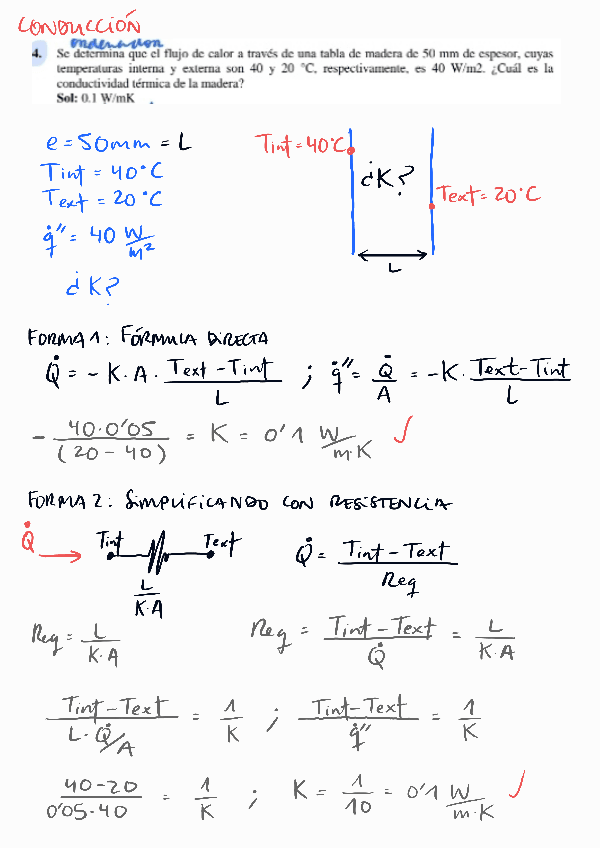 CONDUCCIÓN
ordenador
4. Se determina que el flujo de calor a través de una tabla de madera de 50 mm de espesor, cuyas
temperaturas interna y externa son 40 y 20 °C, respectivamente, es 40 W/m2. ¿Cuál es la
conductividad térmica de la madera?
Sol: 0.1 W/mK
e = 50mm = L
Tint = 40°C
Text = 20°C
q̇" = 40 W/m²
¿K?
Tint = 40°C
¿K?
Text = 20°C
L
FORMA 1: FÓRMULA DIRECTA
Q̇ = - K · A · (Text - Tint)/L ; q̇" = Q̇/A = -K · (Text - Tint)/L
- 40·0'05/(20 - 40) = K = 0'1 W/m·K ✓
FORMA 2: SIMPLIFICANDO CON RESISTENCIA
Q̇ → Tint Text
L/K·A
Q̇ = (Tint - Text)/Req
Req = L/K·A
Req = (Tint - Text)/Q̇ = L/K·A
(Tint - Text)/(L · Q̇/A) = 1/K ; (Tint - Text)/q̇" = 1/K
(40 - 20)/(0'05·40) = 1/K ; K = 1/10 = 0'1 W/m·K ✓